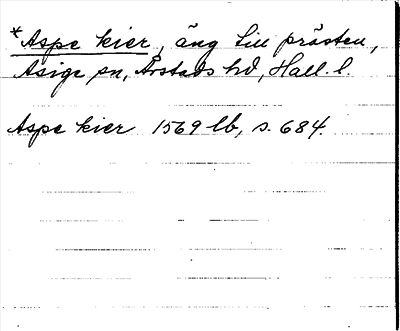 *Aspe kier, äng till prästen,
Asige sn, Årstads hd, Hall. l.
Aspe kier 1569 lb, s. 684.